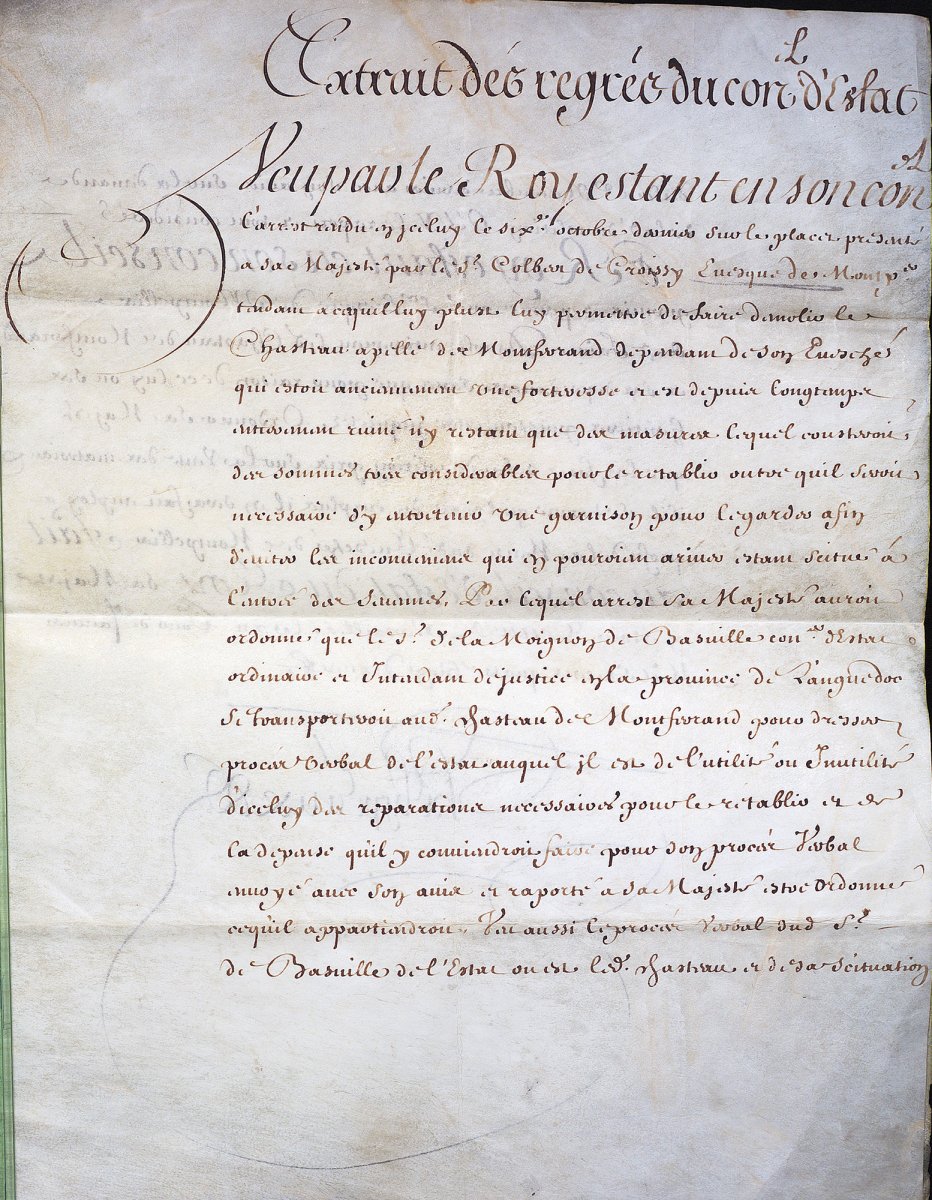 Extrait dés regrés du con.el d'Estat
Veu par le Roy estant en son con.el
l'arrest rendu en jceluy le six.e octobre dernier sur le placet presenté
a sa Majesté par le s.r Colbert de Croissy Euesque de Montp.er
tendant a ce quil luy plust luy permettre de faire demolir le
Chasteau apellé de Montferrand dependant de son Euesché
qui estoit anciennement une forteresse et est depuis longtemps
entierement ruiné n'y restant que des masures lequel cousteroit
des sommes tres considerables pour le retablir outre quil seroit
necessaire d'y entretenir une garnison pour le garder afin
d'euiter les inconueniens qui en pouroient ariuer estant scitué á
l'entrée des Seuennes, Par lequel arrest sa Majesté auroit
ordonné que le s.r de la Moignon de Basuille con.er d'Estat
ordinaire et Intendant de justice en la prouince de Languedoc
se transporteroit aud. chasteau de Montferrand pour dresser
procés verbal de l'estat auquel jl est de l'utilité ou Jnutilité
d'iceluy des reparations necessaires pour le retablir et de
la depense qu'il y conuiendroit faire pour son procés verbal
enuoyé auec son auis et raporté a sa Majesté estre ordonné
ce qu'il appartiendroit, Veu aussi le procés verbal dud S.r
de Basuille de l'Estat ou est led. chasteau et de sa scituation